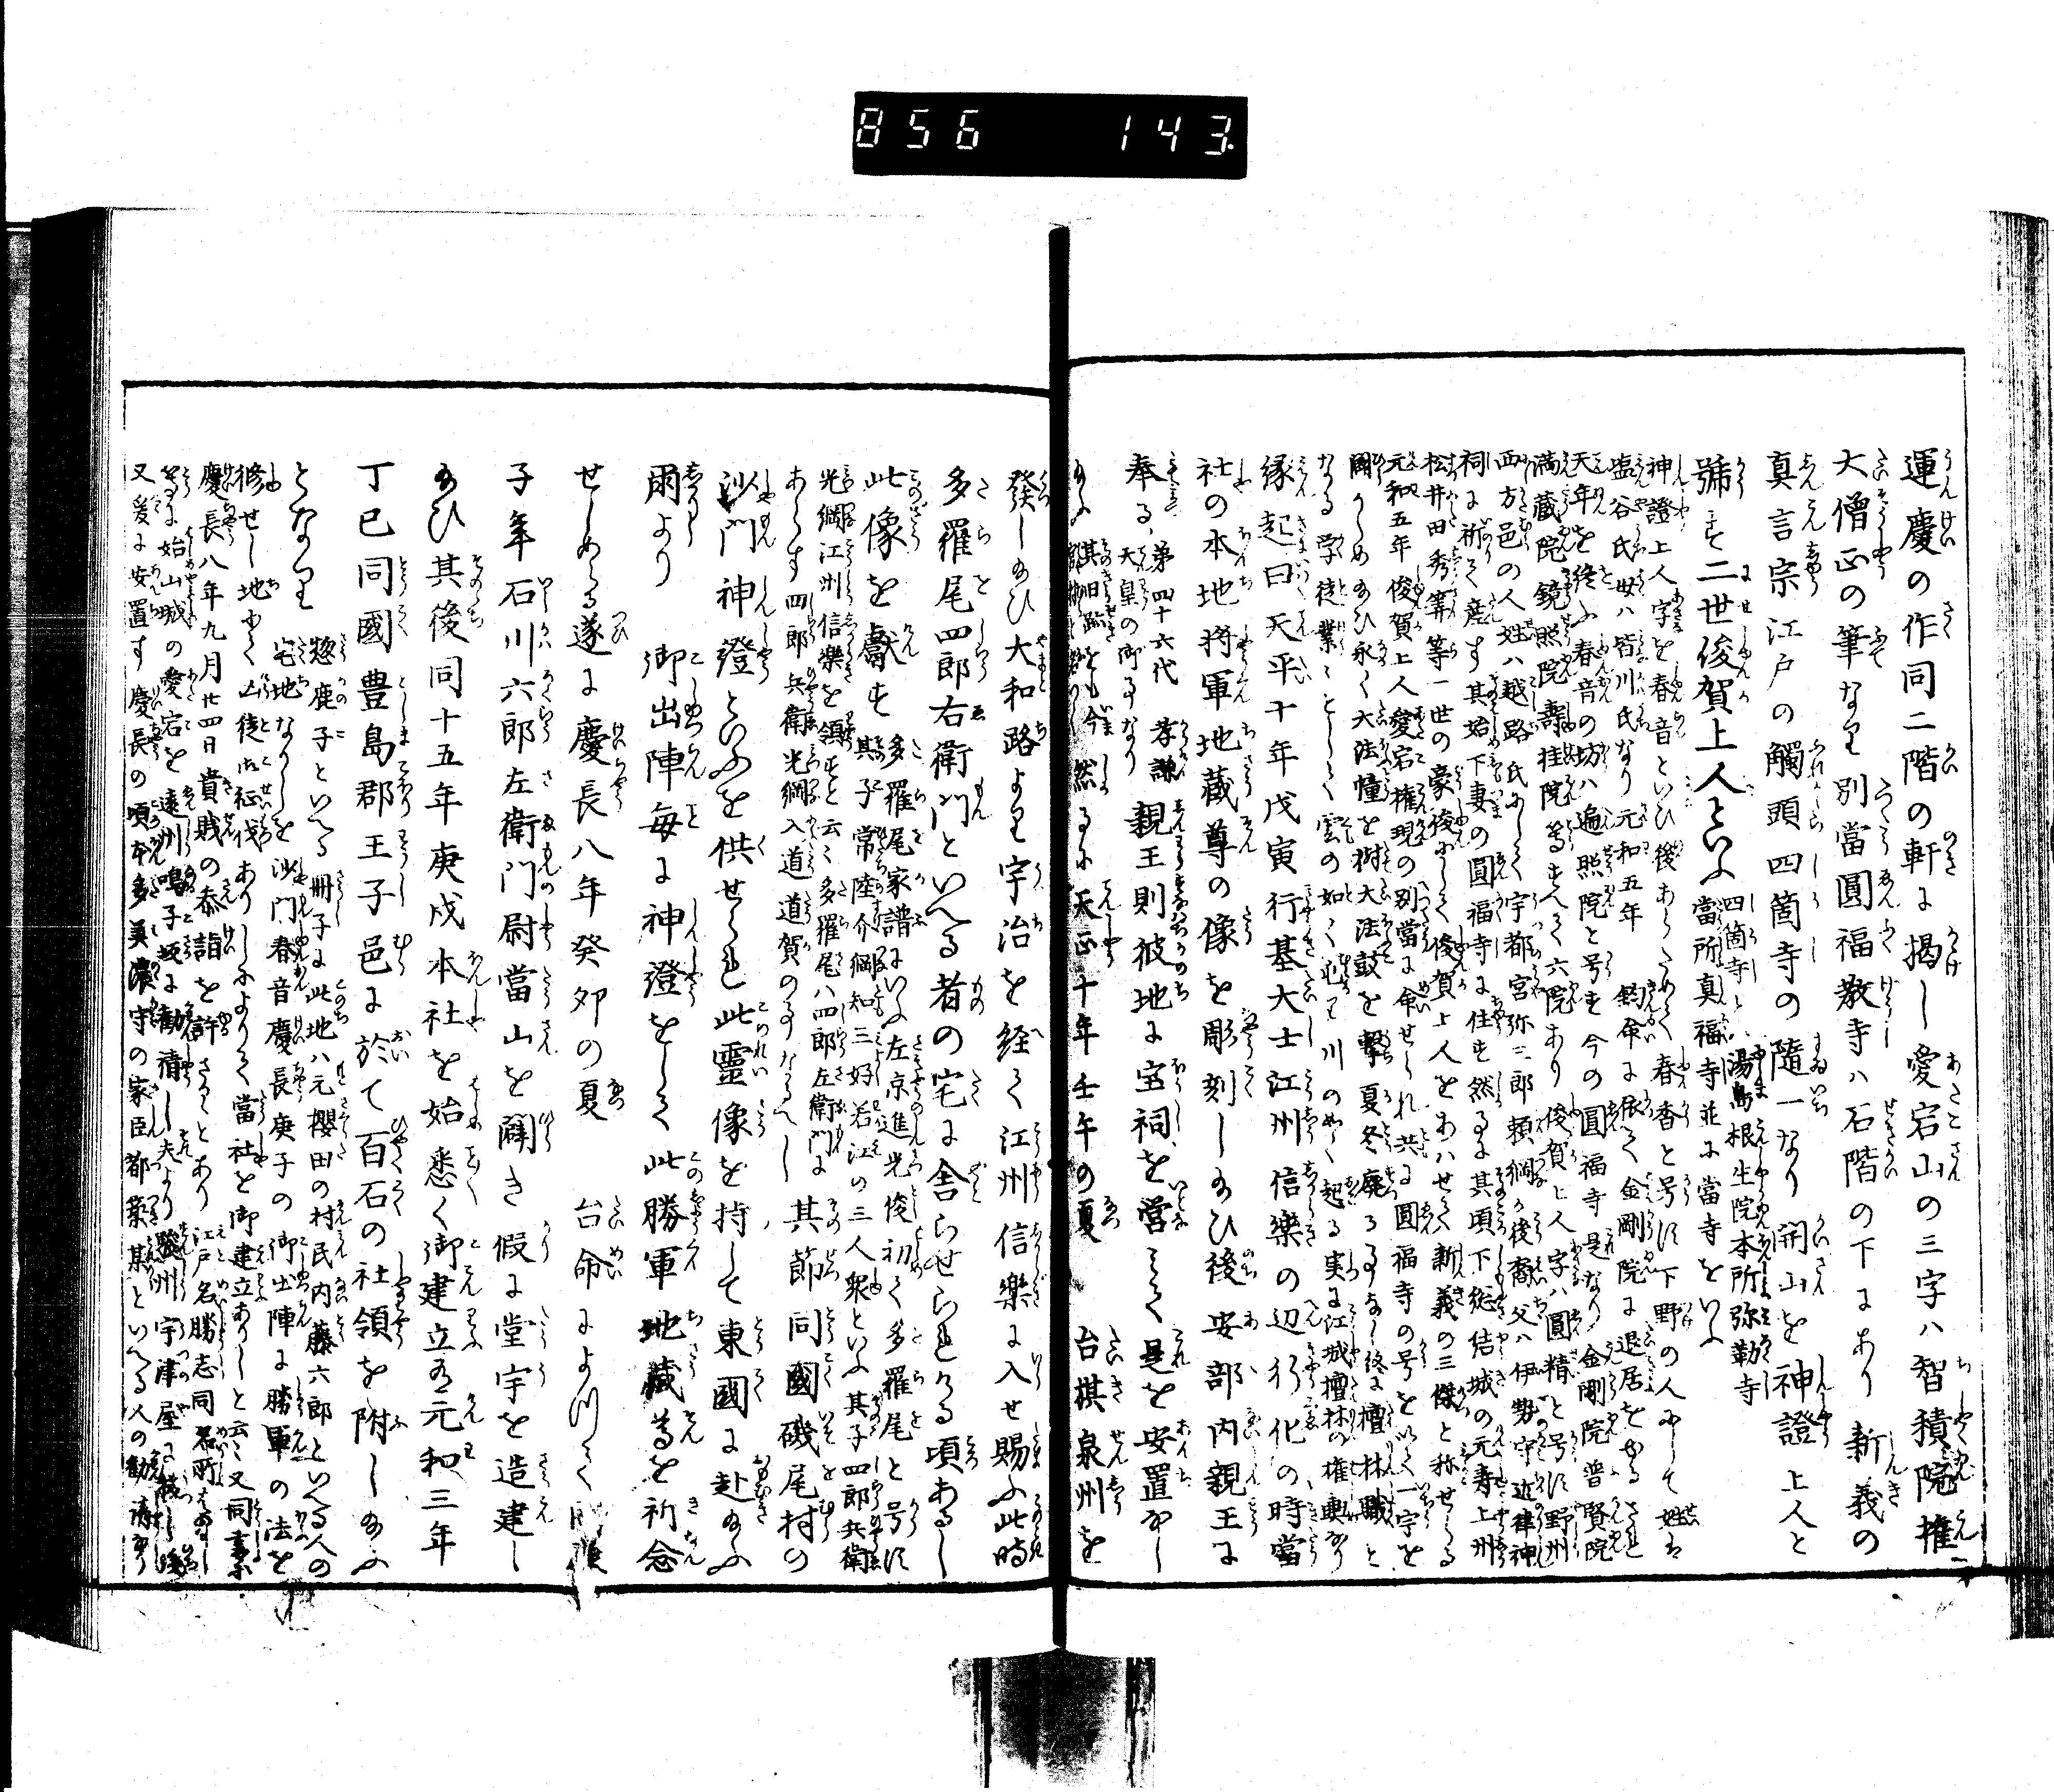 856 143
運慶の作同二階の軒に掲し愛宕山の三字ハ智積院権
大僧正の筆なり別當圓福教寺ハ石階の下にあり新義の
真言宗江戸の觸頭四箇寺の随一なり開山を神證上人と
號す二世俊賀上人といふ四箇寺とハ湯島根生院本所弥勒寺
當所真福寺並に當寺をいふ
神證上人字を春音といひ後あらためて春香と号す下野の人にして姓は
塩谷氏母ハ皆川氏なり元和五年鈞命に依て金剛院に退居を
天年を終ふ春音の坊ハ遍照院と号す今の圓福寺是なり金剛院普賢院
満蔵院鏡照院壽桂院等すへて六院あり俊賀上人字ハ圓精と号す野州
西方邑の人姓ハ越路氏にして宇都宮弥三郎頼綱か後裔父ハ伊勢守
祠に祈て産す其始下妻の圓福寺に住す然るに其頃下総結城の元壽上州
松井田秀算等一世の豪俊にして俊賀上人をあハせて新義の三傑と称せらる
元和五年俊賀上人愛宕権現の別當に命せられ共に圓福寺の号を以て一宇を
開かしめ給ひ永く大法幢を樹大法鼓を撃夏冬廃る事なし終に檀林職と
なる学徒業々として雲の如く川のことく起る実に江城檀林の権輿なり
縁起曰天平十年戊寅行基大士江州信楽の辺行化の時當
社の本地将軍地蔵尊の像を彫刻し給ひ後安部内親王に
奉る第四十六代孝謙天皇の御事なり親王則彼地に宝祠を営みて是を安置なし
給ふ其旧跡とも今然るに天正十年壬午の夏台棋泉州を
發し給ひ大和路より宇治を経て江州信樂に入せ賜ふ此時
多羅尾四郎右衛門といへる者の宅に舎らせられける頃あるし
此像を獻す多羅尾家譜にいふ左京進光俊初て多羅尾と号す
其子常陸介綱知三好若江の三人衆といふ其子四郎兵衛
光綱江州信樂を領すと云々多羅尾ハ四郎左衛門に
あらす四郎兵衛光綱入道道賀の事なるへし其節同國磯尾村の
沙門神證といふを供せられ此靈像を持して東國に赴給ふ
爾より御出陣毎に神證をして此勝軍地蔵尊を祈念
せしめらる遂に慶長八年癸卯の夏台命によつて
子年石川六郎左衛門尉當山を闢き假に堂宇を造建し
給ひ其後同十五年庚戌本社を始悉く御建立元和三年
丁巳同國豊島郡王子邑に於て百石の社領を附し給ふ
となり惣鹿子といへる冊子に此地ハ元櫻田の村民内藤六郎といへる人の
宅地なりしを沙門春音慶長庚子の御出陣に勝軍の法を
修せし地にて山徒御征伐ありしによりて當社を御建立ありしと云々又同書に
慶長八年九月廿四日貴賤の参詣を許さるとあり江戸名勝志同名所はなし
等に始山城の愛宕を遠州鳴子坂に勧請し夫より駿州宇津屋に移し
又爰に安置す慶長の頃本多美濃守の家臣都築某といへる人の勧請なり